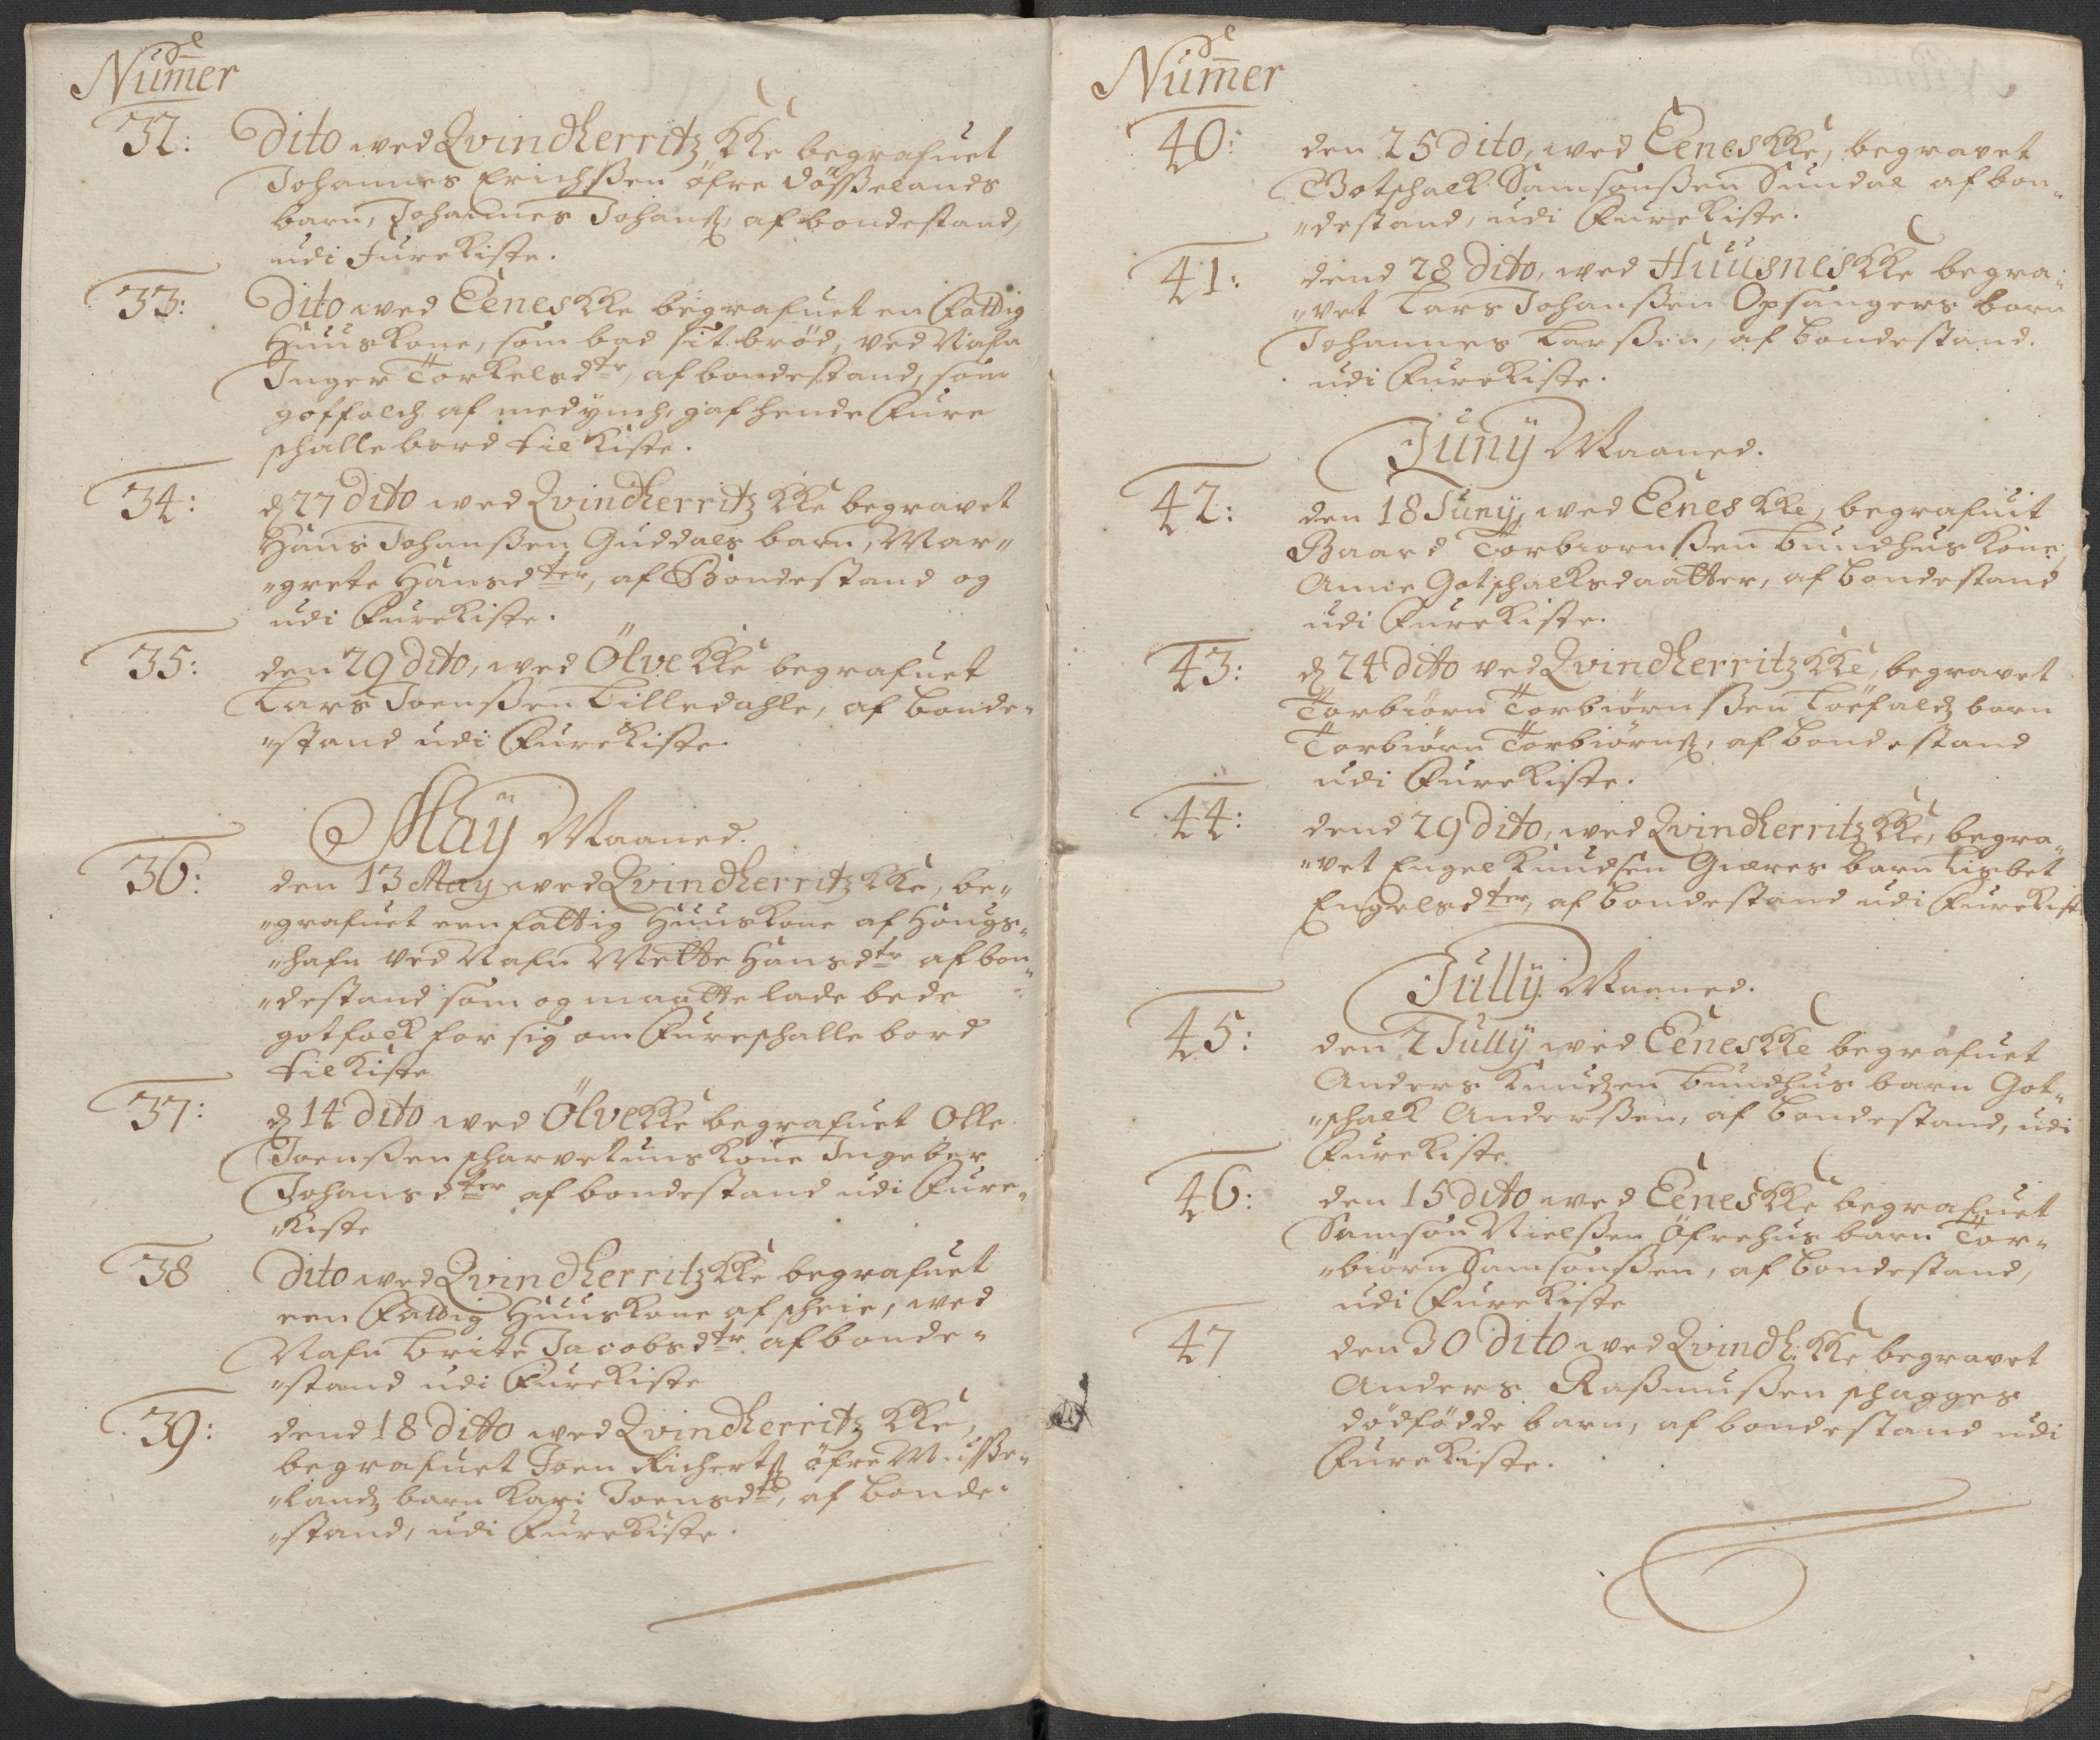 Numer
32: Dito wed Qvindherritz KKe begrafuet
Johannes Erichßen öfre Dößelands
barn, Johannes Johanß, af bondestand,
udi furekiste.
33: Dito wed Eenes KKe begrafuet en fattig
Huuskone, som bad sit bröd, ved Nafn
Inger Torkelsdtr, af bondestand, som
gotfolch af medynch, gaf hende fure
schallebord til kiste.
34: d 27 Dito wed Qvindherritz KKe begravet
Hans Johanßen Guddals barn, Mar„
„grete Hansdter, af Bondestand og
udi furekiste.
35: den 29 Dito, wed Ölve KKe begrafuet
Lars Joenßen Lilledahle, af bonde„
„stand udi furekiste.
Maÿ Maaned.
36: den 13 May wed Qvindherritz KKe, be„
„grafuet een fattig Huuskone af Hougs„
„hafn ved Nafn Mette Hansdtr af bon„
„destand som og maatte lade bede
gotfolk for sig om fureschalle bord
til kiste
37: d 14 Dito wed Ölve KKe begrafuet Olle
Joenßen scharvetuns kone Ingeber
Johansdter af bondestand udi fure„
„kiste
38 Dito wed Qvindherritz KKe begrafuet
een fattig Huuskone af scheie, wed
Nafn Brite Jacobsdtr af bonde„
„stand udi furekiste
39: dend 18 Dito wed Qvindherritz KKe,
begrafuet Joen Richertß öfre Muße„
„landz barn Kari Joensdtr, af bonde„
„stand, udi furekiste.
Numer
40: den 25 Dito, wed Eenes KKe, begravet
Gotschalk Samsonßen Sundal af bon„
„destand, udi furekiste.
41: dend 28 Dito, wed Huusnes KKe begra„
„vet Lars Johanßen Opsangers barn
Johannes Larßen, af bondestand.
udi furekiste.
Junÿ Maaned.
42: den 18 Junÿ, wed Eenes KKe, begrafuit
Baard Torbiornßen Bundhus kone,
Anne Gotschalksdaatter, af bondestand
udi furekiste.
43: d 24 Dito ved Qvindherritz KKe, begravet
Torbiörn Torbiörnßen Löefaldz barn
Torbiörn Torbiörnß, af bondestand
udi furekiste.
44: dend 29 Dito, wed Qvindherritz KKe, begra„
„vet Engel Knudsen Giæres barn Lisbet
Engelsdter, af bondestand udi furekist
Jullÿ Maaned.
45: den 2 Jullÿ wed Eenes KKe begrafuet
Anders Knudzen Bundhus barn Got„
„schalk Anderßen, af bondestand, udi
furekiste
46: den 15 Dito wed Eenes KKe begrafuet
Samson Nielßen Öfrehus barn Tor„
„biörn Samsonßen, af bondestand,
udi furekiste
47 den 30 Dito wed Qvindh: KKe begravet
Anders Raßmußen schagges
dödfödde barn, af bondestand udi
furekiste.